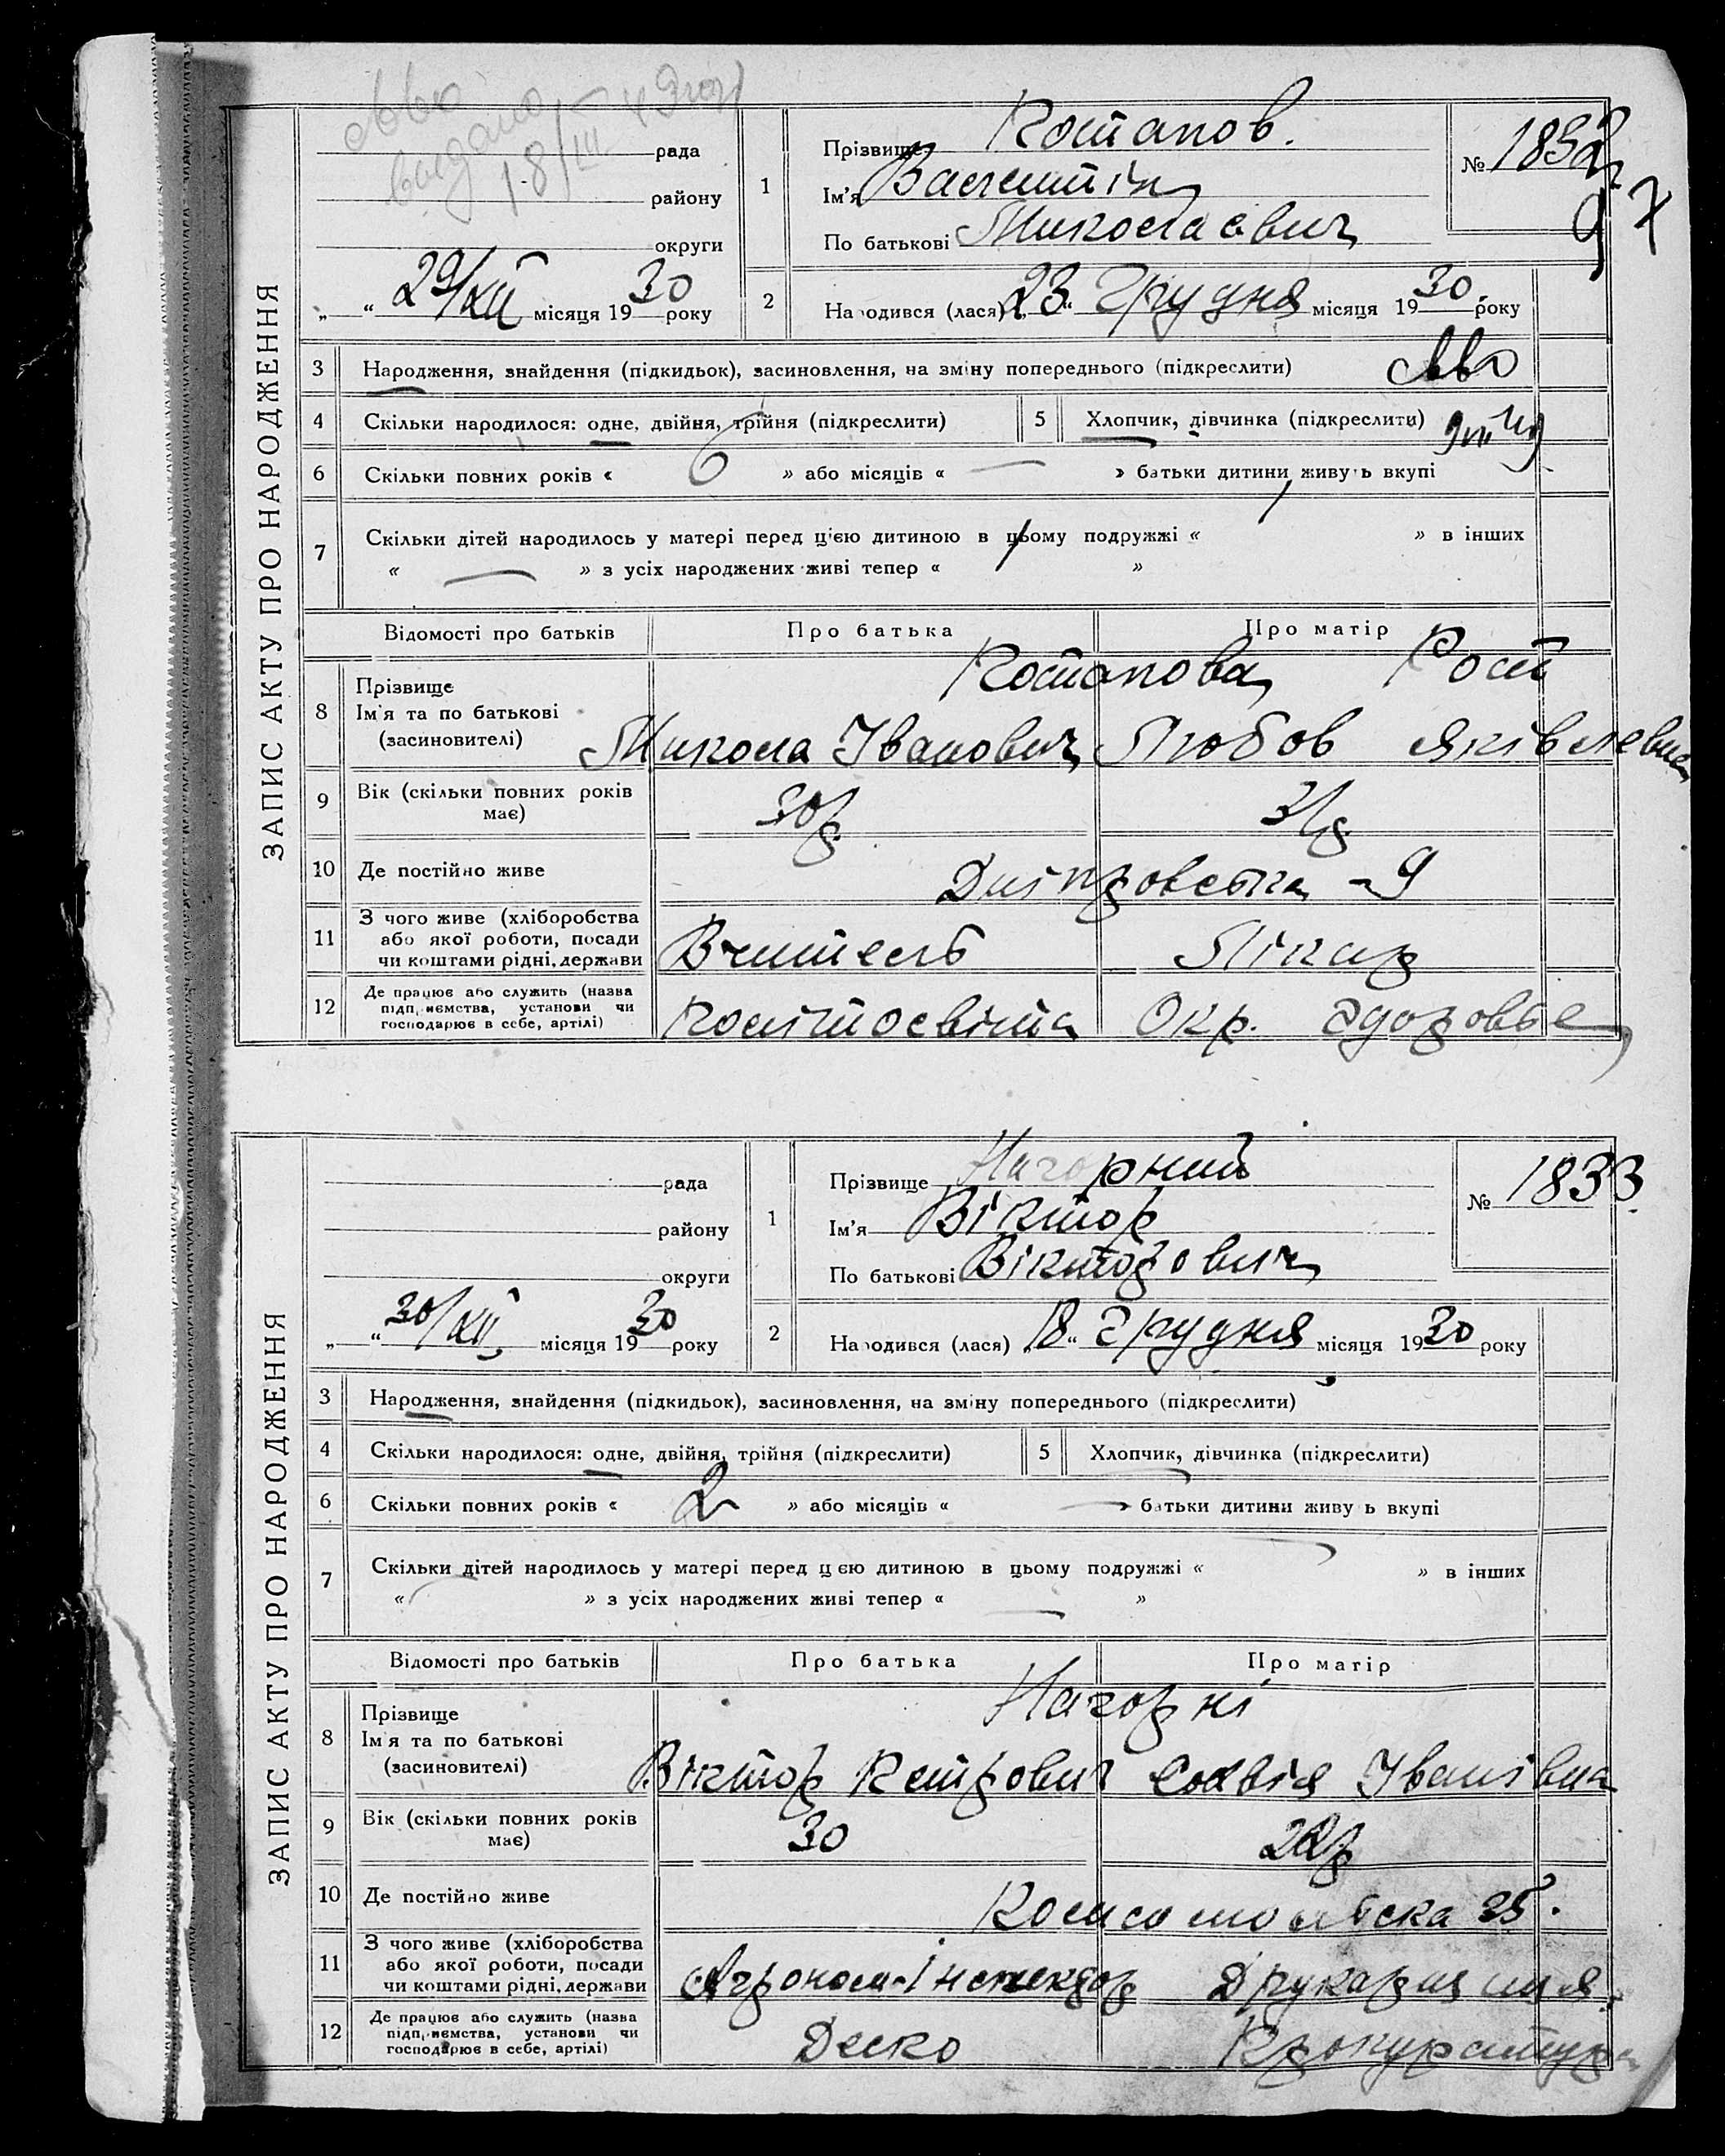 ЗАПИС АКТУ ПРО НАРОДЖЕННЯ
видано
18/III
рада
району
округи
„ “ 29/XII місяця 1930 року
1
Прізвище
Ім'я Валентін
По батькові Миколаєвич
№ 1832
97
2
Народився (лася) „23“ Грудня місяця 1930 року
3 Народження, знайдення (підкидьок), засиновлення, на зміну попереднього (підкреслити)
4 Скільки народилося: одне, двійня, трійня (підкреслити)
5 Хлопчик, дівчинка (підкреслити)
6 Скільки повних років « 6 » або місяців « — » батьки дитини живуть вкупі
7 Скільки дітей народилось у матері перед цією дитиною в цьому подружжі « » в інших
« — » з усіх народжених живі тепер « »
Відомості про батьків Про батька Про матір
8 Прізвище
Ім'я та по батькові
(засиновителі)
Микола Іванович Любов Яківлевна
9 Вік (скільки повних років має)
30р 31р
10 Де постійно живе
Дніпровська - 9
11 З чого живе (хліборобства або якої роботи, посади чи коштами рідні, держави
Вчитель Лікар
12 Де працює або служить (назва підприємства, установи чи господарює в себе, артілі)
Політосвіта Окр. здоровье
ЗАПИС АКТУ ПРО НАРОДЖЕННЯ
рада
району
округи
„ “ 30/XII місяця 1930 року
1
Прізвище Нагорний
Ім'я Віктор
По батькові Вікторович
№ 1833
2
Народився (лася) „18“ Грудня місяця 1930 року
3 Народження, знайдення (підкидьок), засиновлення, на зміну попереднього (підкреслити)
4 Скільки народилося: одне, двійня, трійня (підкреслити)
5 Хлопчик, дівчинка (підкреслити)
6 Скільки повних років « 2 » або місяців « — батьки дитини живуть вкупі
7 Скільки дітей народилось у матері перед цією дитиною в цьому подружжі « — » в інших
« — » з усіх народжених живі тепер « — »
Відомості про батьків Про батька Про матір
8 Прізвище
Ім'я та по батькові
(засиновителі)
Нагорні
Віктор Петрович Софія Іванівна
9 Вік (скільки повних років має)
30
10 Де постійно живе
Комсомольська 25.
11 З чого живе (хліборобства або якої роботи, посади чи коштами рідні, держави
Агроном-Інспектор Друкарниця
12 Де працює або служить (назва підприємства, установи чи господарює в себе, артілі)
Прокуратура